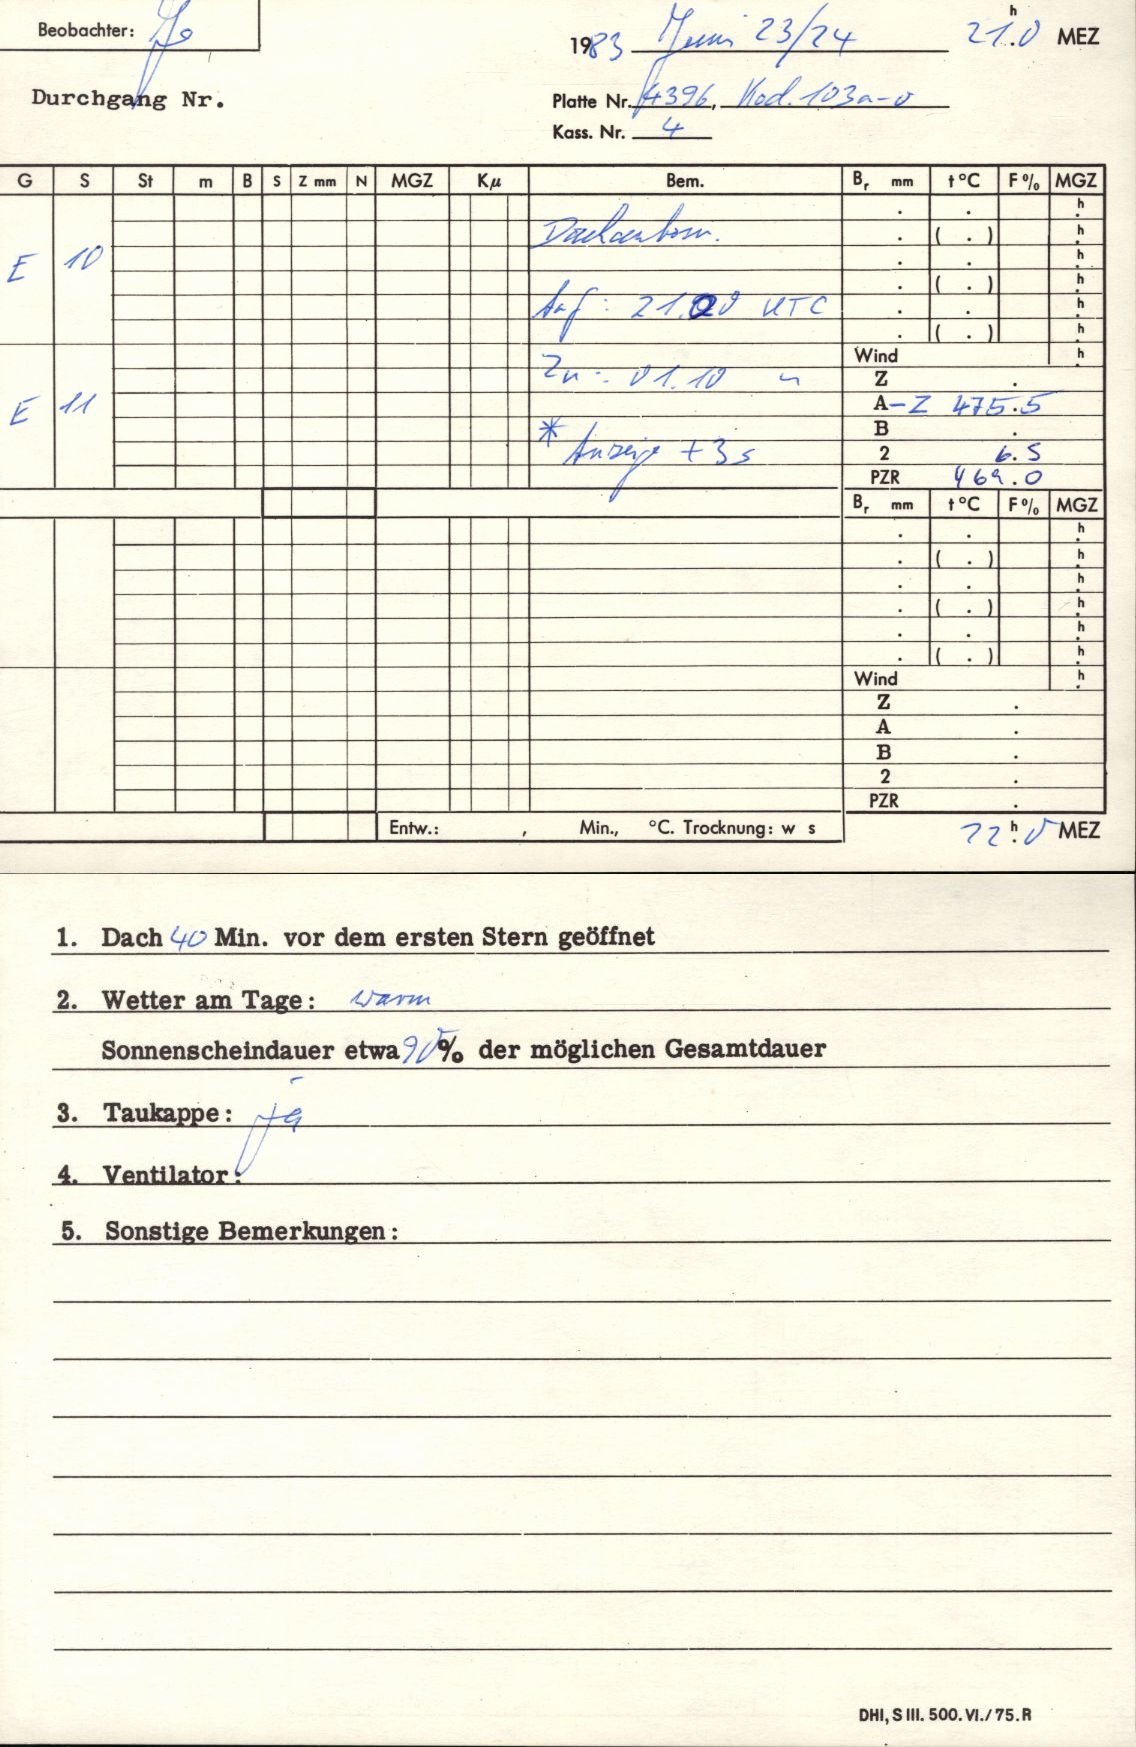 Beobachter:
1983 Juni 23/24 21h.0 MEZ
Durchgang Nr.
Platte Nr. 4396, Kod. 103a-0
Kass. Nr. 4
G S St m B S Z mm N MGZ Kμ Bem. Br mm t°C F% MGZ
. . h.
. ( . ) h.
E 10 . . h.
. ( . ) h.
Auf: 21.20 UTC . . h.
. ( . ) h.
Wind h.
Zu: 01.10 " Z .
E 11 A-Z 475.5
B .
* Anzeige +3s 2 6.5
PZR 469.0
Br mm t°C F% MGZ
. . h.
. ( . ) h.
. . h.
. ( . ) h.
. . h.
. ( . ) h.
Wind h.
Z .
A .
B .
2 .
PZR .
Entw.: , Min., °C. Trocknung: w s 22h.0 MEZ
1. Dach 40 Min. vor dem ersten Stern geöffnet
2. Wetter am Tage: warm
Sonnenscheindauer etwa 90% der möglichen Gesamtdauer
3. Taukappe: ja
4. Ventilator:
5. Sonstige Bemerkungen:
DHI, S III. 500. VI./75. R